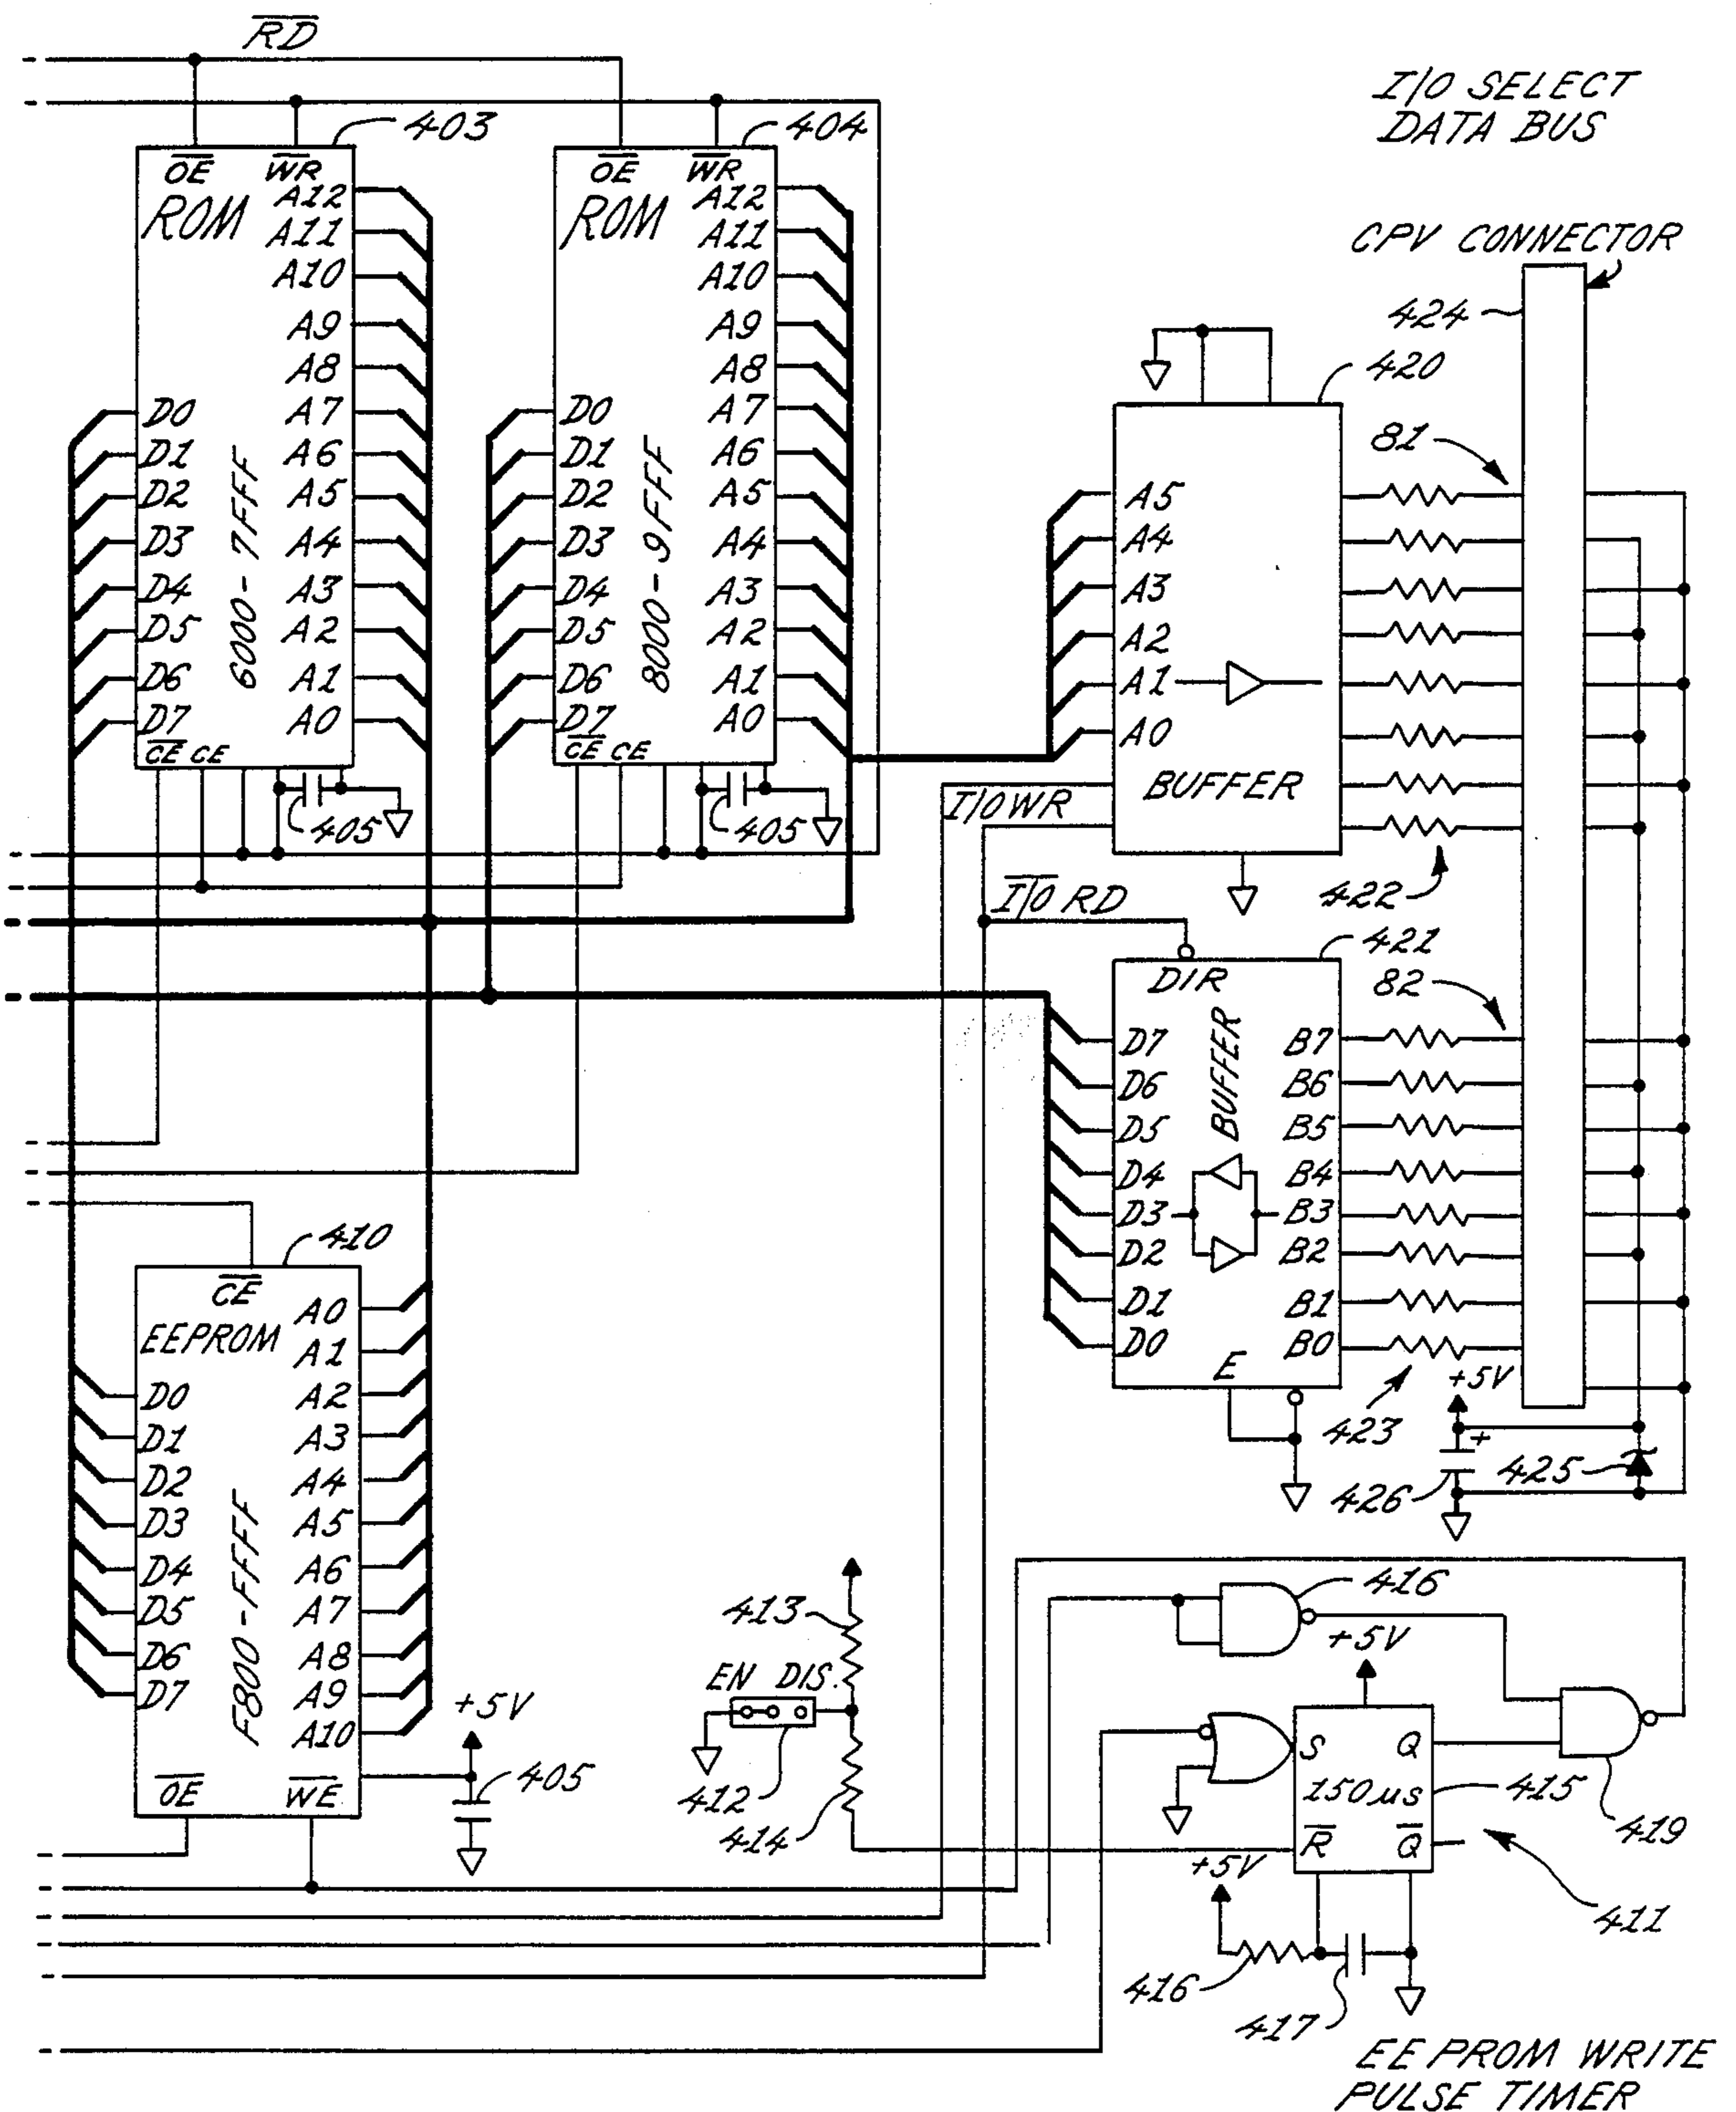 RD
I/O SELECT
DATA BUS
403
404
OE WR
ROM
A12
A11
A10
A9
A8
A7
A6
A5
A4
A3
A2
A1
A0
D0
D1
D2
D3
D4
D5
D6
D7
6000-7FFF
CE CE
405
OE WR
ROM
A12
A11
A10
A9
A8
A7
A6
A5
A4
A3
A2
A1
A0
D0
D1
D2
D3
D4
D5
D6
D7
8000-9FFF
CE CE
405
CPV CONNECTOR
424
420
81
A5
A4
A3
A2
A1
A0
BUFFER
I/O WR
422
I/O RD
421
DIR
82
BUFFER
D7
D6
D5
D4
D3
D2
D1
D0
B7
B6
B5
B4
B3
B2
B1
B0
E
423
+5V
+
425
426
410
CE
EEPROM
A0
A1
A2
A3
A4
A5
A6
A7
A8
A9
A10
D0
D1
D2
D3
D4
D5
D6
D7
F800-FFFF
OE WE
+5V
405
413
EN DIS.
412
414
416
+5V
S Q
150µs
R Q
415
419
+5V
411
416
417
EEPROM WRITE
PULSE TIMER